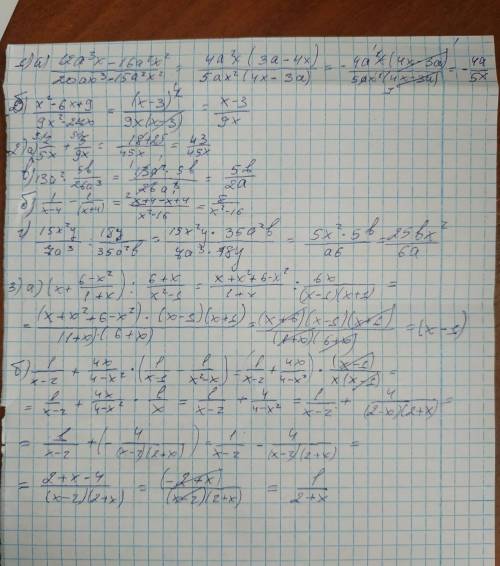 1) а) (12a³x - 16a²x²)/(20ax³ - 15a²x²) = 4a²x(3a-4x)/5ax²(4x-3a) = - 4a²x(4x-3a)/5ax²(4x-3a) = - 4a/5x
б) (x²-6x+9)/(9x²-27x) = (x-3)²/9x(x-3) = (x-3)/9x
2) а) /5x + /9x = (18+25)/45x = 43/45x
в) 13a² · 5b/26a³ = 13a² · 5b/26a³ = 5b/2a
б) 1/(x-4) - 1/(x+4) = (x+4-x+4)/(x²-16) = 8/(x²-16)
г) 15x²y/7a³ : 18y/35a²b = 15x²y · 35a²b/7a³ · 18y = 5x² · 5b/a6 = 25bx²/6a
3) а) (x + (6-x²)/(1+x)) : (6+x)/(x²-1) = (x+x²+6-x²)/(1+x) · 6x/(x-1)(x+1) =
= (x+x²+6-x²) · (x-1)(x+1)/(1+x)(6+x) = (x+6)(x-1)(x+1)/(1+x)(6+x) = (x-1)
б) 1/(x-2) + 4x/(4-x²) · (1/(x-1) - 1/(x²-x)) = 1/(x-2) + 4x/(4-x²) · (x-1)/x(x-1) =
= 1/(x-2) + 4x/(4-x²) · 1/x = 1/(x-2) + 4/(4-x²) = 1/(x-2) + 4/(2-x)(2+x) =
= 1/(x-2) + (- 4/(x-2)(2+x)) = 1/(x-2) - 4/(x-2)(2+x) =
= (2+x-4)/(x-2)(2+x) = (-2+x)/(x-2)(2+x) = 1/(2+x)